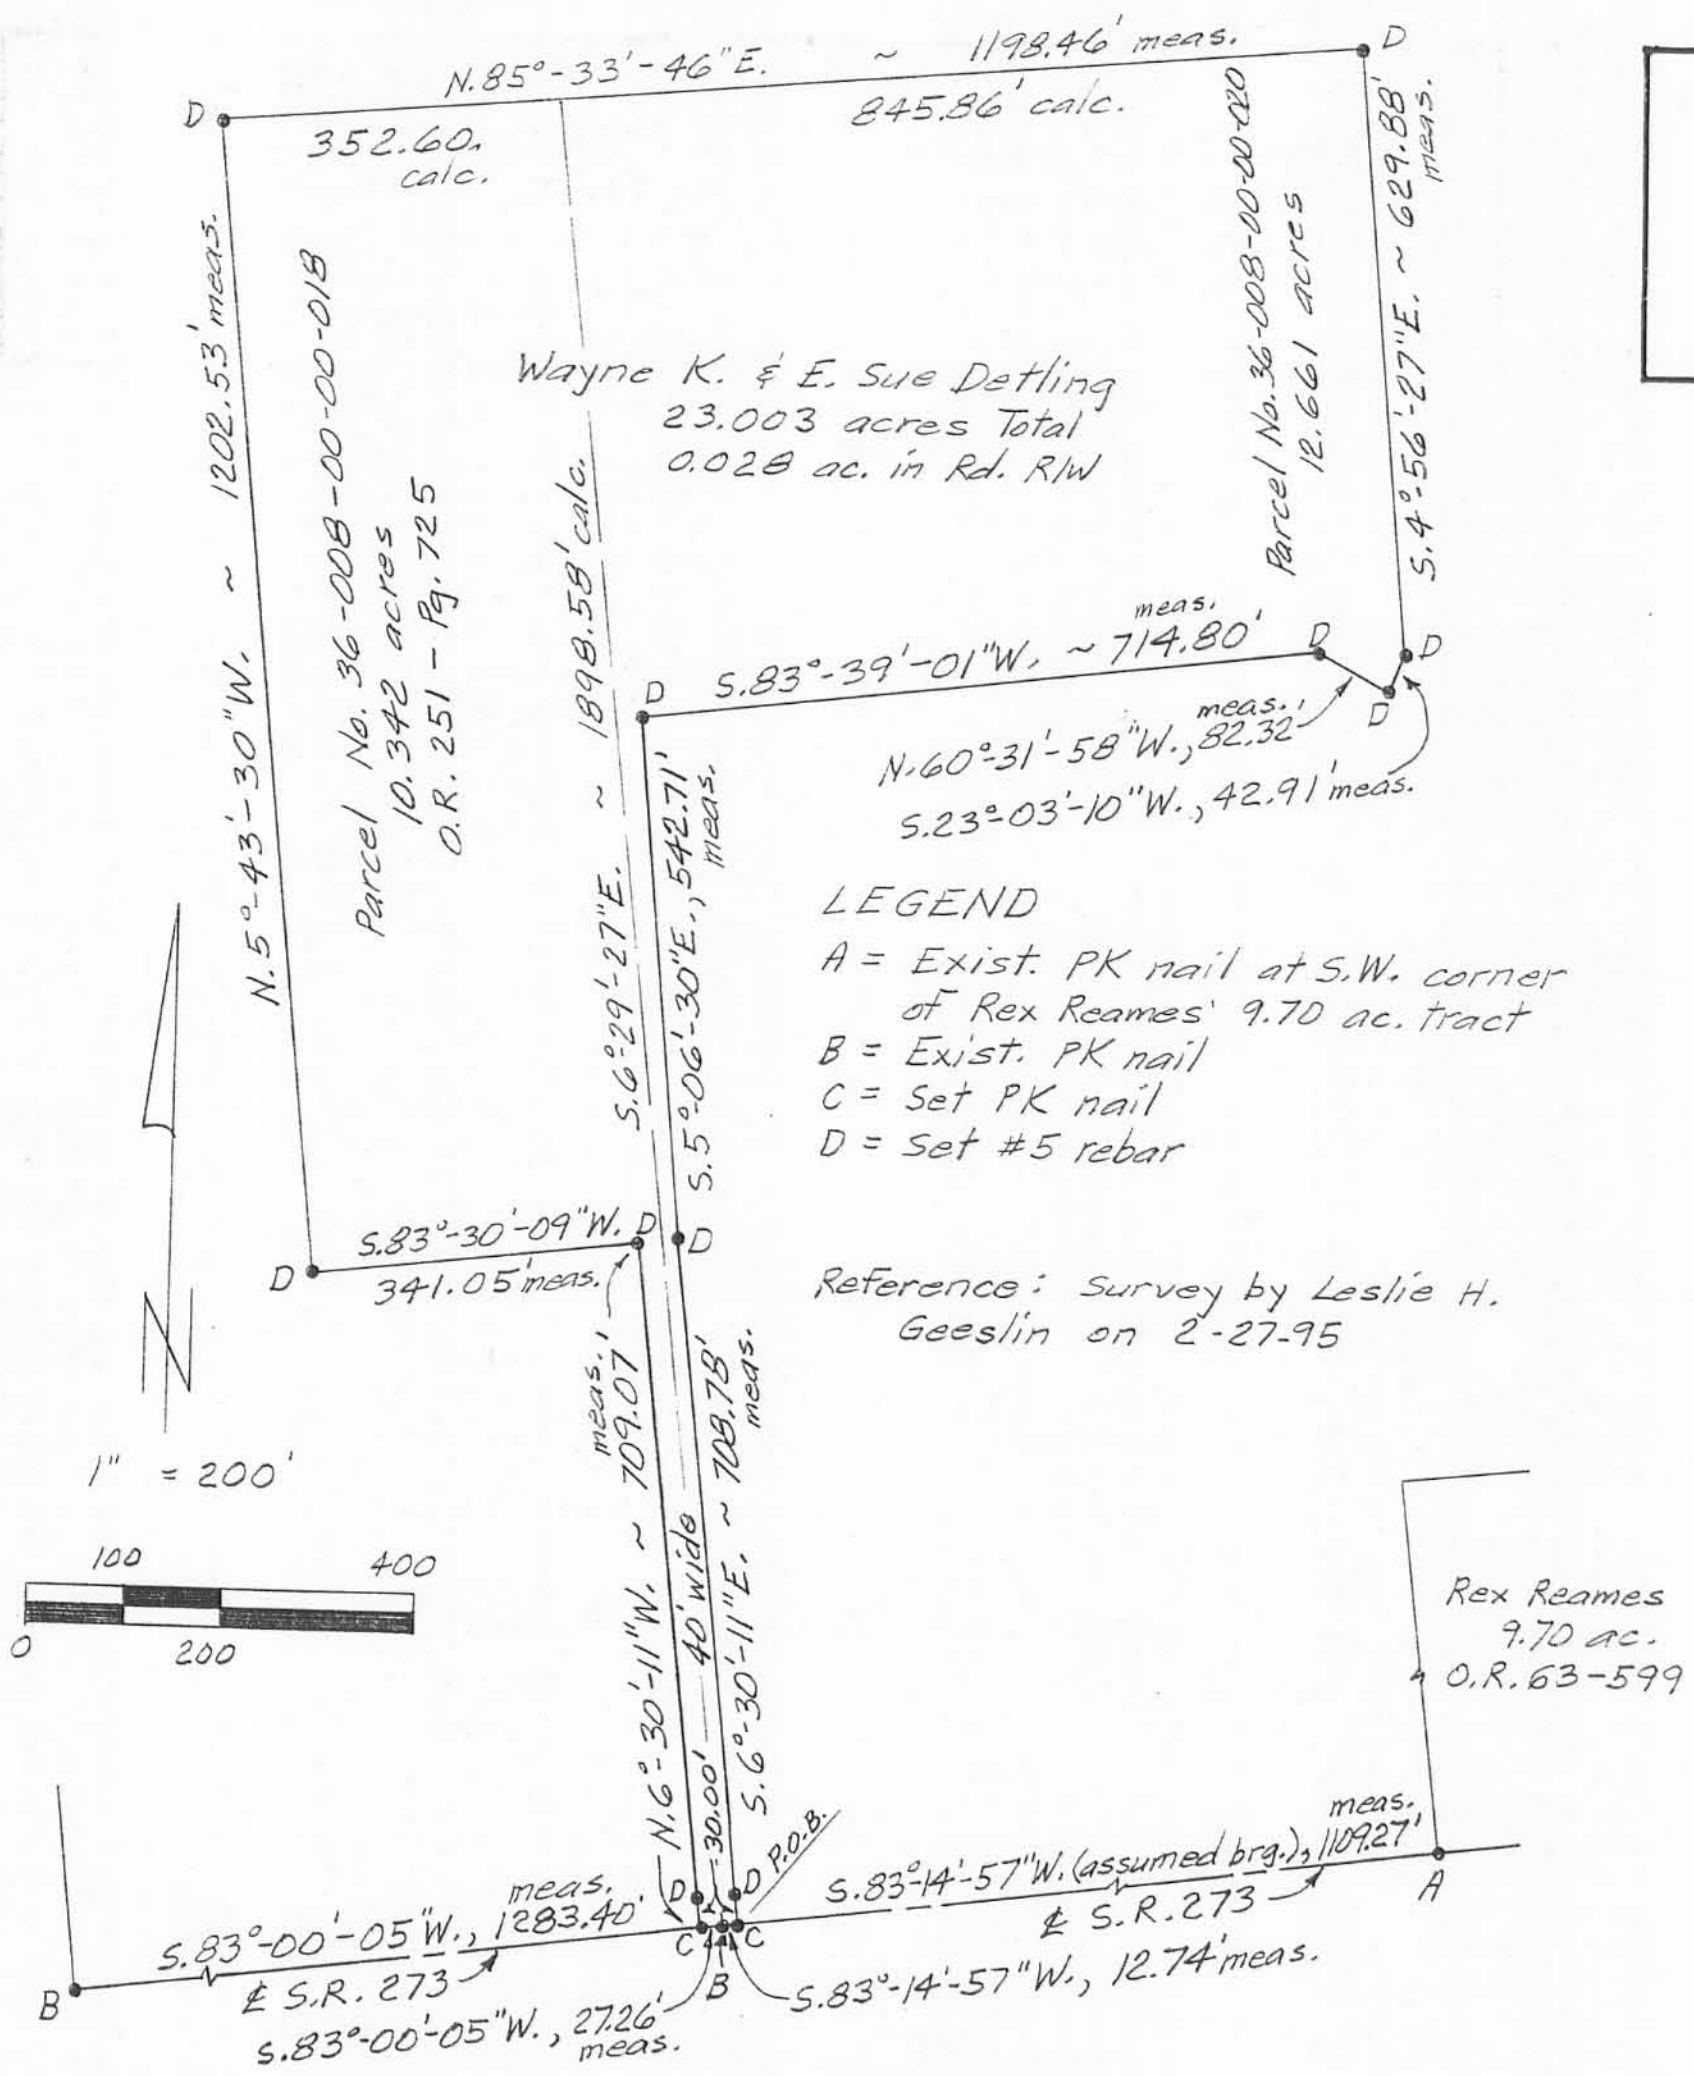 N.85°-33'-46"E. ~ 1198.46' meas.
D
D
352.60'
calc.
845.86' calc.
N.5°-43'-30"W. ~ 1202.53' meas.
Parcel No. 36-008-00-00-018
10.342 acres
O.R. 251 - Pg. 725
S.6°-29'-27"E. ~ 1898.58' calc.
Wayne K. & E. Sue Detling
23.003 acres Total
0.028 ac. in Rd. R/W
Parcel No. 36-008-00-00-020
12.661 acres
S.4°-56'-27"E. ~ 629.88'
meas.
meas.
S.83°-39'-01"W. ~ 714.80'
D
D
D
D
meas.
N.60°-31'-58"W., 82.32'
S.23°-03'-10"W., 42.91' meas.
S.5°-06'-30"E., 542.71'
meas.
LEGEND
A = Exist. PK nail at S.W. corner
of Rex Reames' 9.70 ac. tract
B = Exist. PK nail
C = Set PK nail
D = Set #5 rebar
S.83°-30'-09"W.
D
D
D
341.05' meas.
Reference: Survey by Leslie H.
Geeslin on 2-27-95
N
1" = 200'
100 400
0 200
meas.
N.6°-30'-11"W. ~ 709.07'
40' wide
30.00'
S.6°-30'-11"E. ~ 708.78'
meas.
Rex Reames
9.70 ac.
O.R. 63-599
P.O.B.
D
D
meas.
S.83°-14'-57"W. (assumed brg.), 1109.27'
℄ S.R. 273
A
meas.
S.83°-00'-05"W., 1283.40'
℄ S.R. 273
B
C
C
B
S.83°-14'-57"W., 12.74' meas.
S.83°-00'-05"W., 27.26'
meas.